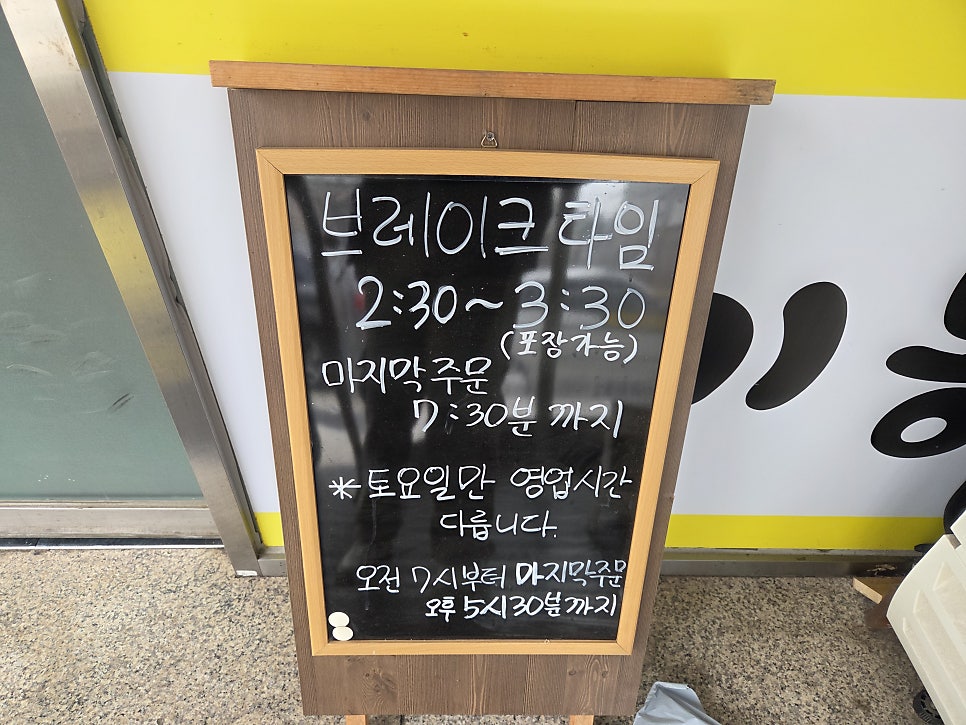 브레이크 타임
2:30~3:30
(포장가능)
마지막 주문
7:30분 까지
* 토요일만 영업시간
다릅니다.
오전 7시부터 마지막주문
오후 5시30분까지